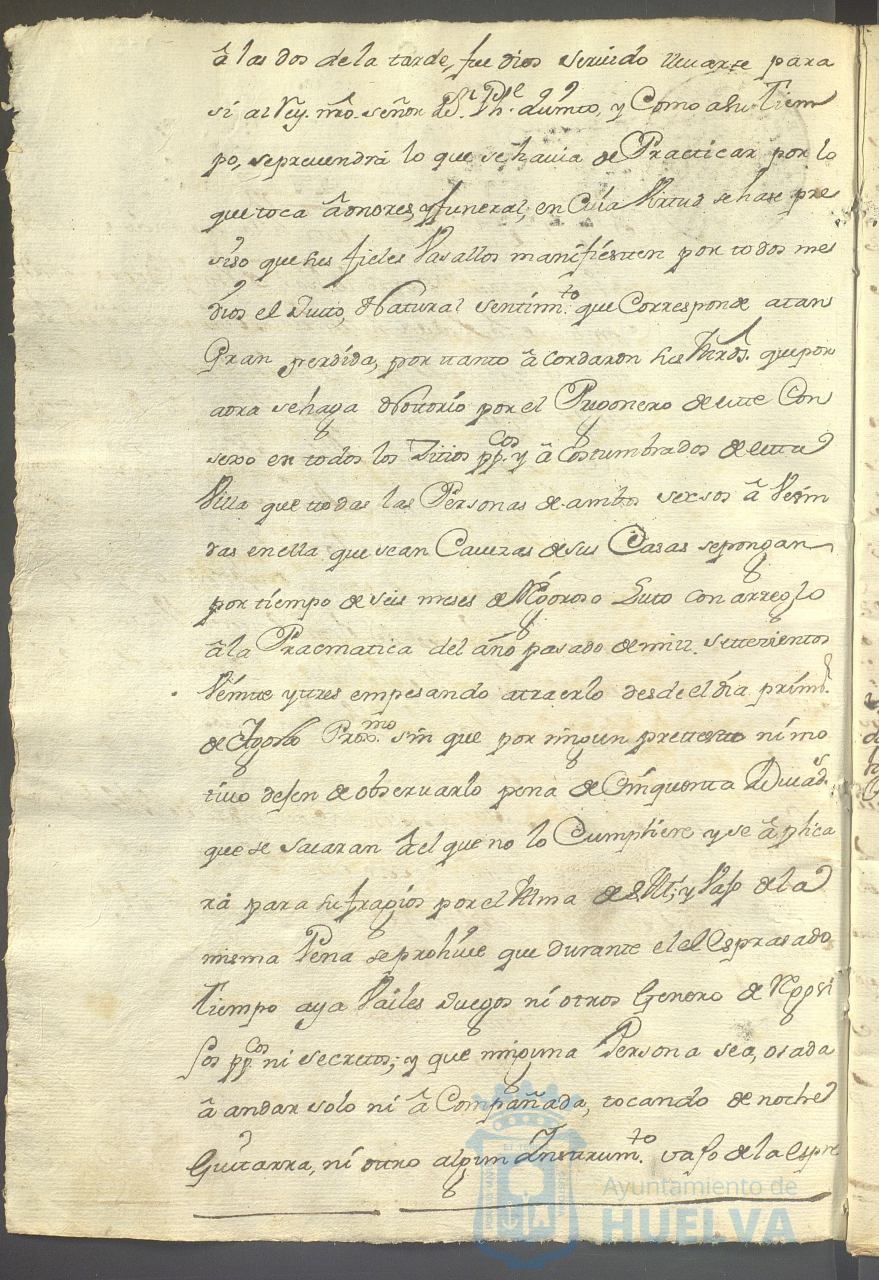 â las dos de la tarde, fue dios seruido lleuarse para
sí al Rey. nrō. señor Dn. Phe. quinto, y Como a su tiem
po, se preuendrá lo que se hauía de Practicar por lo
que toca â onores, y funeral, en Cuía Virtud se hase pre
siso que sus fieles Vasallos manifiesten por todos me
dios el Justo, Natural sentimto. que Corresponde a tan
Gran perdida, por tanto â Cordaron sus Mrds. que por
aora se haga Notorio por el Pregonero de este Con
sexo en todos los Sitios ppcos. y â Costumbrados de esta
Villa que ttodas las Personas de ambos sexsos â Vesin
das en ella que sean Cauezas de sus Casas se pongan
por tiempo de seis meses de Rigoroso Luto con arreglo
â la Pracmatica del año pasado de mill. setteзientos
Veinte y tres empesando atraerlo desde el día prim.
de Agosto Proxmo. sin que por ningun prettesto ni mo
tiuo dejen de obseruarlo pena de Cinquenta Ducads.
que se sacaran â el que no lo Cumpliere y se â plica
rá para sufragios por el Alma de S. M; y Vajo de la
misma Pena se prohiue que durante el el Espresado
Tiempo aya Vailes Juegos ni otros Genero de Regosi
Jos ppcos ni secretos; y que ninguna Persona sea, osada
â andar solo ni â Compañada, tocando de noche
Guitarra, ni ottro algun Ynstrumto. vajo de la Espre
Ayuntamiento de
HUELVA